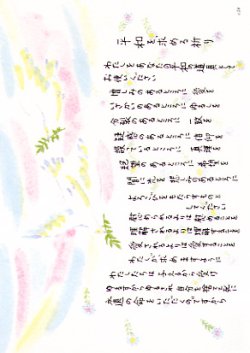 平和を求める祈り
わたしをあなたの平和の道具として
お使いください
憎しみのあるところに愛を
いさかいのあるところにゆるしを
分裂のあるところに一致を
疑惑のあるところに信仰を
誤っているところに真理を
絶望のあるところに希望を
闇に光を 悲しみのあるところに
よろこびをもたらすものと
してください
慰められるよりは慰めることを
理解されるよりは理解することを
愛されるよりは愛することを
わたしが求めますように
わたしたちは 与えるから受け
ゆるすからゆるされ 自分を捨てて死に
永遠の命をいただくのですから